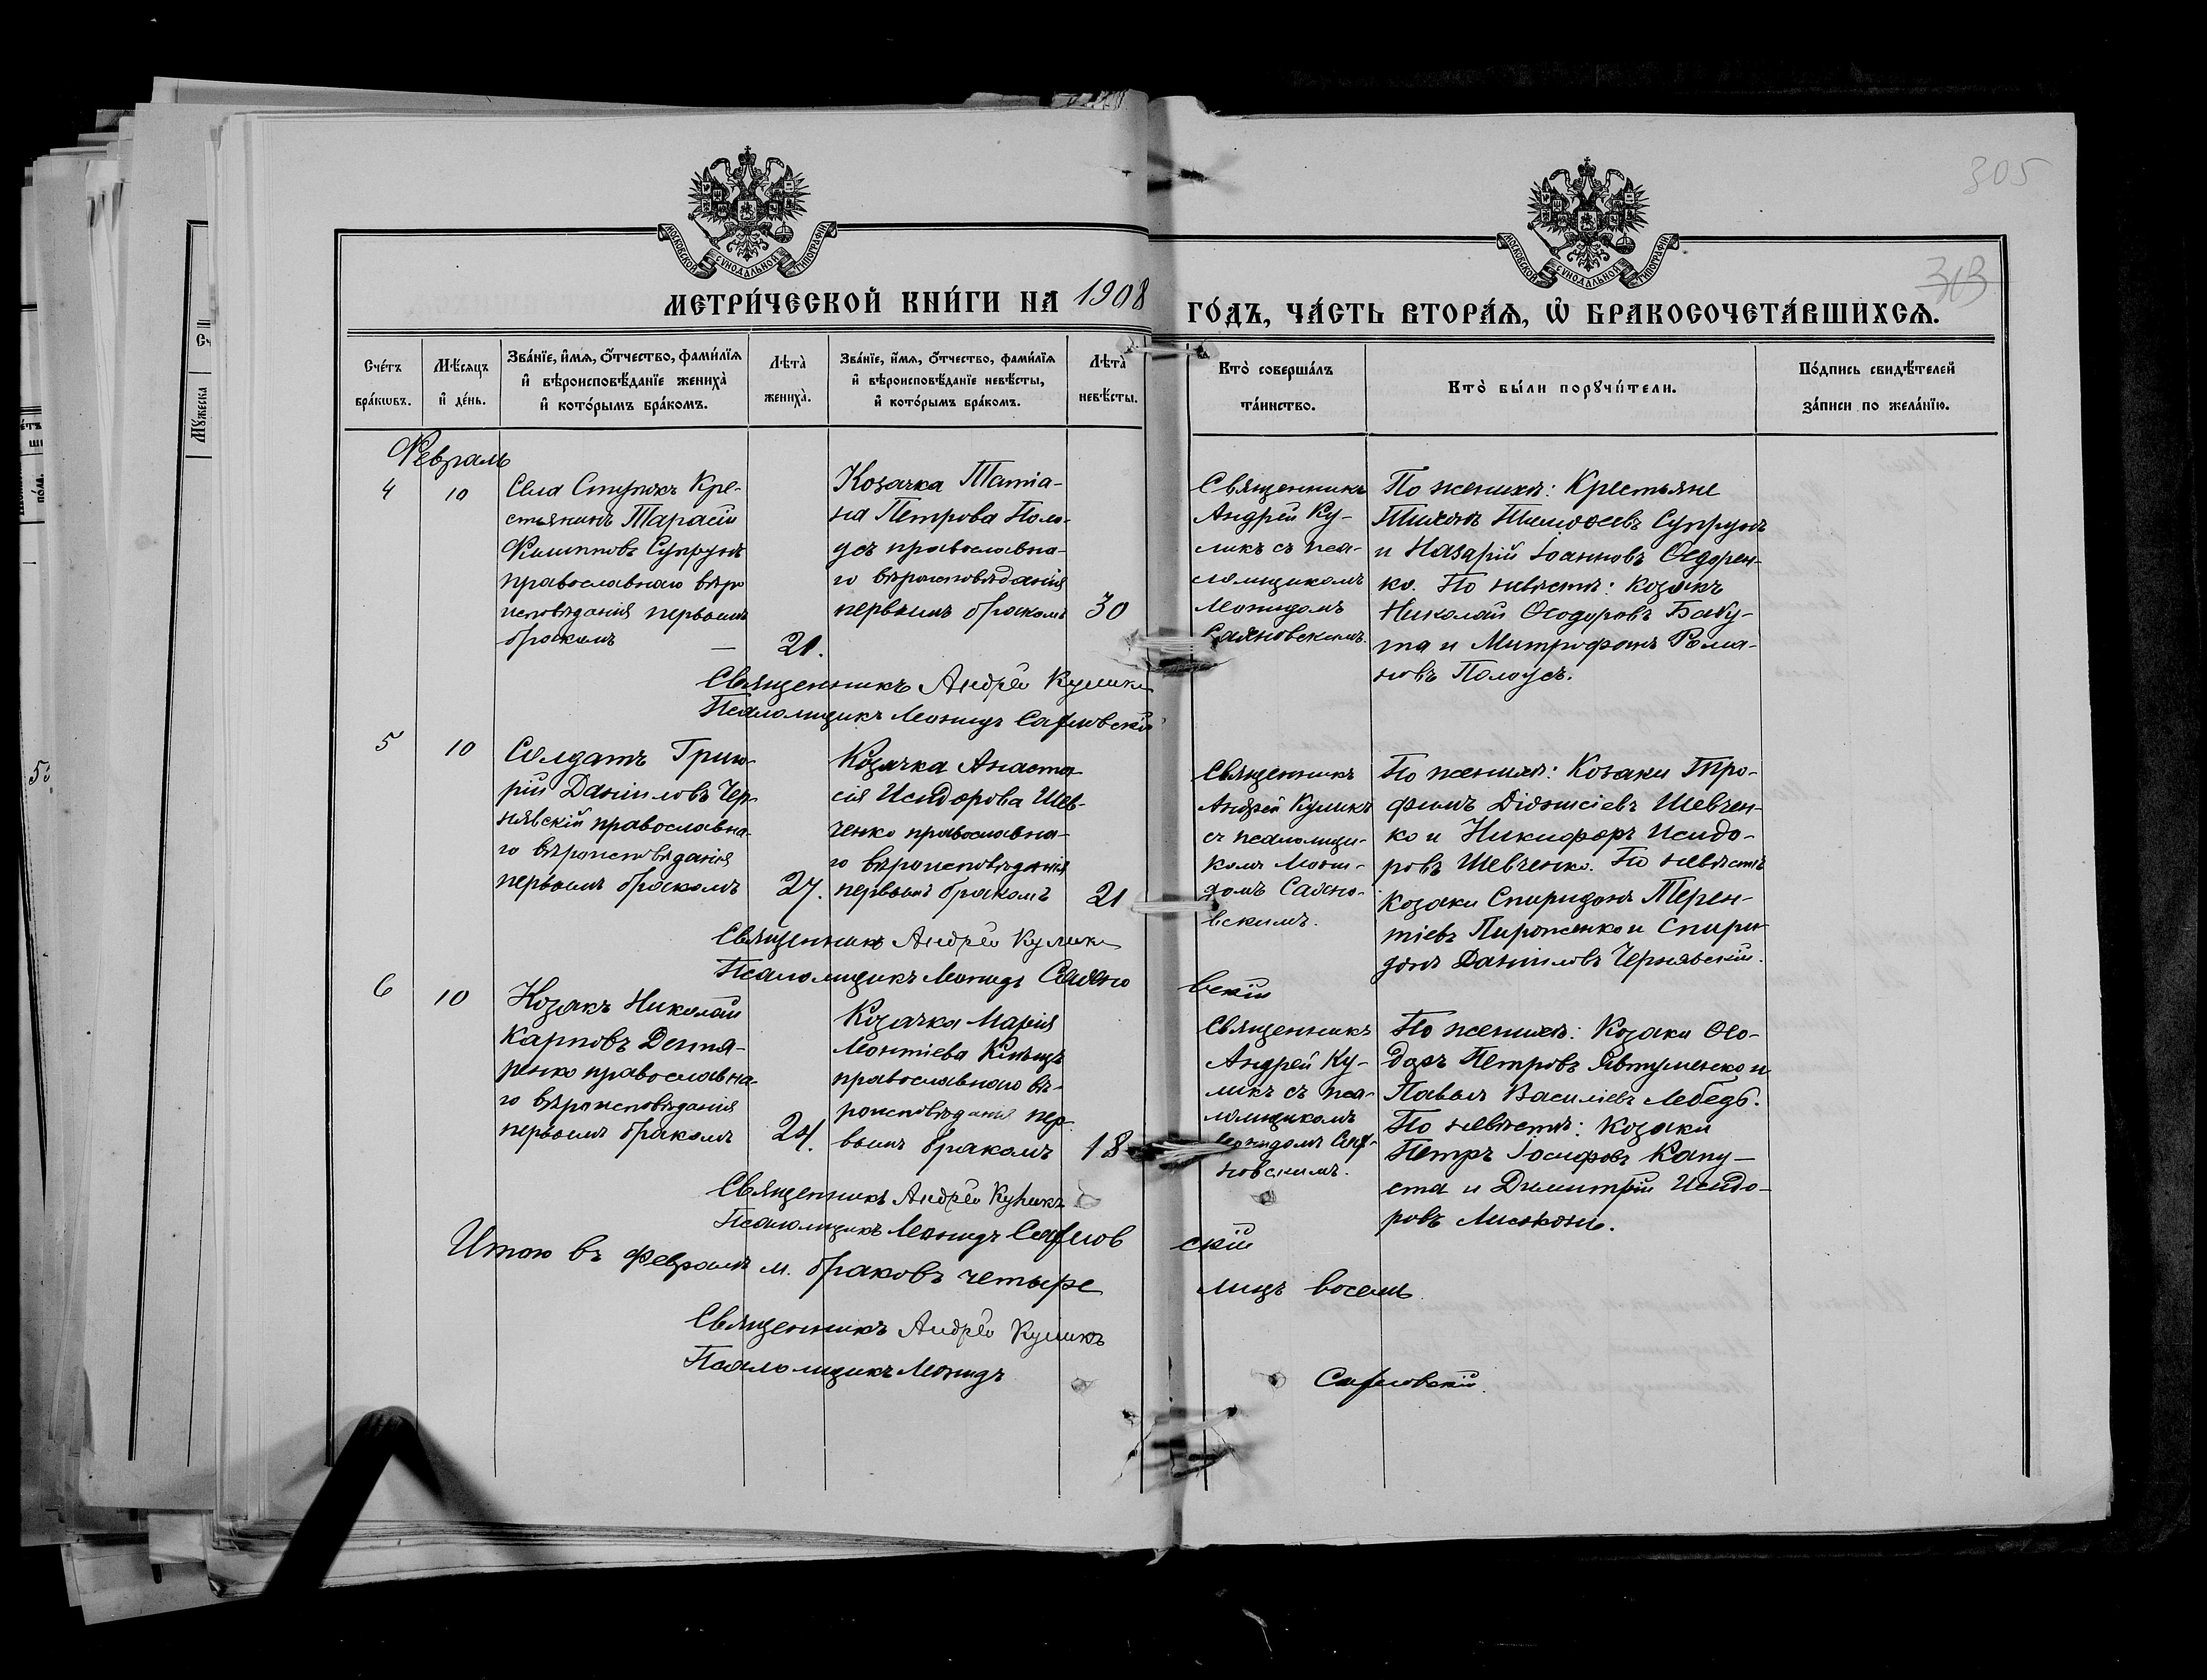 305
313
МОСКОВСКОЙ СѴНОДАЛЬНОЙ ТИПОГРАФІИ
МОСКОВСКОЙ СѴНОДАЛЬНОЙ ТИПОГРАФІИ
МЕТРИ́ЧЕСКОЙ КНИ́ГИ НА 1908
ГО́ДЪ, ЧА́СТЬ ВТОРА́Ѧ, Ѡ҆ БРАКОСОЧЕТА́ВШИХСѦ.
Сче́тъ
бра́кѡвъ.
Мѣ́сѧцъ
и҆ де́нь.
Зва́нїе, и҆́мѧ, ѻ҆́тчество, фами́лїѧ
и҆ вѣроисповѣ́данїе жениха̀
и҆ кото́рымъ бра́комъ.
Лѣта̀
жениха̀.
Зва́нїе, и҆́мѧ, ѻ҆́тчество, фами́лїѧ
и҆ вѣроисповѣ́данїе невѣ́сты,
и҆ кото́рымъ бра́комъ.
Лѣта̀
невѣ́сты.
Кто̀ соверша́лъ
та́инство.
Кто̀ бы́ли порꙋчи́тели.
По́дпись свидѣ́телей
за́писи по жела́нїю.
Февраль
4
10
Села Ступокъ Кре-
стьянинъ Тарасій
Филипповъ Супрунъ
православнаго вѣро
исповѣданія первымъ
бракомъ — 21.
Козачка Татіа-
на Петрова Поло-
усъ православна-
го вѣроисповѣданія
первымъ бракомъ
30
Священникъ
Андрей Ку-
ликъ съ пса-
ломщикомъ
Леонидомъ
По женихѣ: Крестьяне
Тихонъ Тимоѳеевъ Супрунъ
и Назарій Іоанновъ Ѳедорен-
ко. По невѣстѣ: Козакъ
Николай Ѳеодоровъ Бабу-
та и Митрофанъ Рома-
новъ Полоусъ.
Священникъ Андрей Куликъ
Псаломщикъ Леонидъ
5
10
Солдатъ Григо-
рій Даніиловъ Чер-
нявскій православна-
го вѣроисповѣданія
первымъ бракомъ
27.
Козачка Анаста-
сія Исидорова Шев-
ченко православна-
го вѣроисповѣданія
первымъ бракомъ
21
Священникъ
Андрей Куликъ
съ псаломщи-
комъ Леони-
домъ
вскимъ.
По женихѣ: Козаки Тро-
фимъ Діонисіевъ Шевчен-
ко и Никифоръ Исидо-
ровъ Шевченко. По невѣстѣ
Козаки Спиридонъ Терен-
тіевъ Пироженко и Спири-
донъ Даніиловъ Чернявскій.
Священникъ Андрей Куликъ
Псаломщикъ Леонидъ
вскій
6
10
Козакъ Николай
Карповъ Дегтя-
ренко православна-
го вѣроисповѣданія
первымъ бракомъ
24.
Козачка Марія
Леонтіева
православнаго вѣ-
роисповѣданія пер-
вымъ бракомъ
18
Священникъ
Андрей Ку-
ликъ съ пса-
ломщикомъ
Леонидомъ
новскимъ.
По женихѣ: Козаки Ѳео-
доръ Петровъ Явтушенко и
Павелъ Василіевъ Лебедь.
По невѣстѣ: Козаки
Петръ Іосифовъ Капу-
ста и Димитрій Исидо-
ровъ
Священникъ Андрей Куликъ
Псаломщикъ Леонидъ
скій
Итого въ февралѣ м. браковъ четыре лицъ восемь
Священникъ Андрей Куликъ
Псаломщикъ Леонидъ